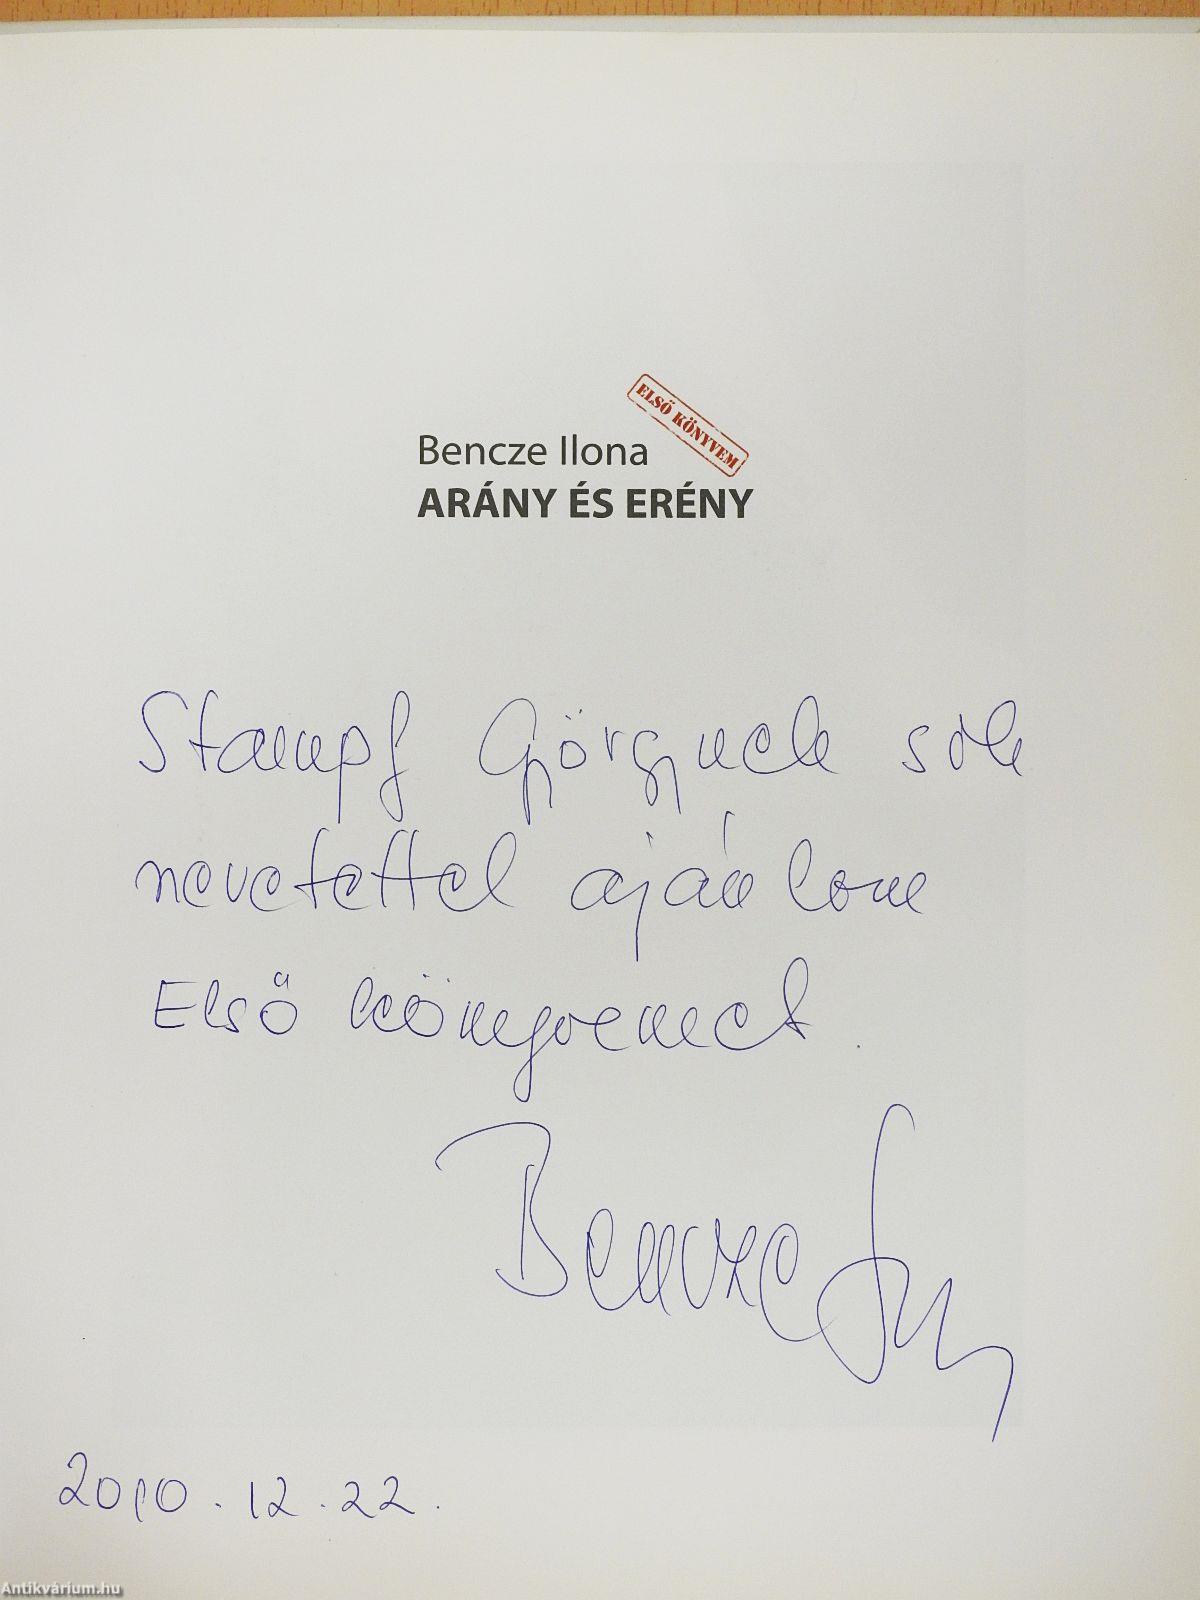 ELSŐ KÖNYVEM
Bencze Ilona
ARÁNY ÉS ERÉNY
Stampf Györgynek sok
nevetettel ajánlom
Első könyvemet.
Bencze Ilona
2010.12.22.
Antikvárium.hu